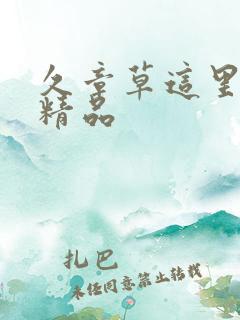 久章草這里
精品
扎巴
未经同意禁止转载